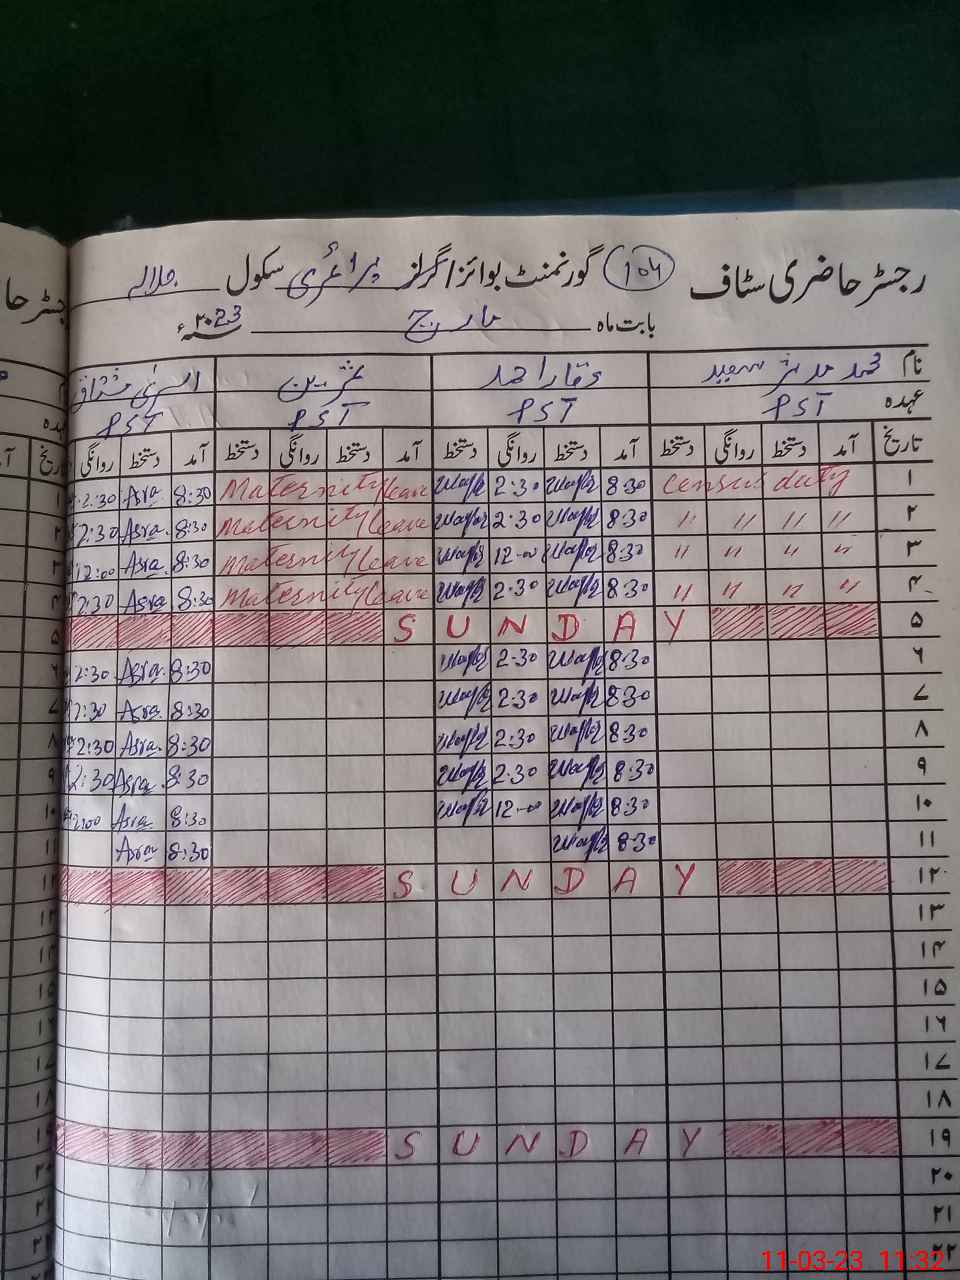 رجسٹر حاضری سٹاف 104 گورنمنٹ بوائز/گرلز پرائمری سکول جلالہ
بابت ماہ مارچ سنہ ۲۰23ء
نام محمد مدثر سعید وقار احمد اسریٰ مشتاق
عہدہ PST PST PST PST
تاریخ آمد دستخط روانگی دستخط آمد روانگی دستخط آمد دستخط روانگی دستخط آمد دستخط روانگی
۱ census duty 8:30 2:30 Maternity leave 8:30 Asra 2:30
۲ " " " " 8:30 2:30 Maternity leave 8:30 Asra 2:30
۳ " " " " 8:30 12-00 Maternity leave 8:30 Asra 12:00
۴ " " " " 8:30 2:30 Maternity leave 8:30 Asra 2:30
۵ SUNDAY
۶ 8:30 2:30 8:30 Asra 2:30
۷ 8:30 2:30 8:30 Asra 2:30
۸ 8:30 2:30 8:30 Asra 2:30
۹ 8:30 2:30 8:30 Asra 2:30
۱۰ 8:30 12-00 8:30 Asra
۱۱ 8:30 8:30 Asra
۱۲ SUNDAY
۱۳
۱۴
۱۵
۱۶
۱۷
۱۸
۱۹ SUNDAY
۲۰
۲۱
۲۲
11-03-23 11:32